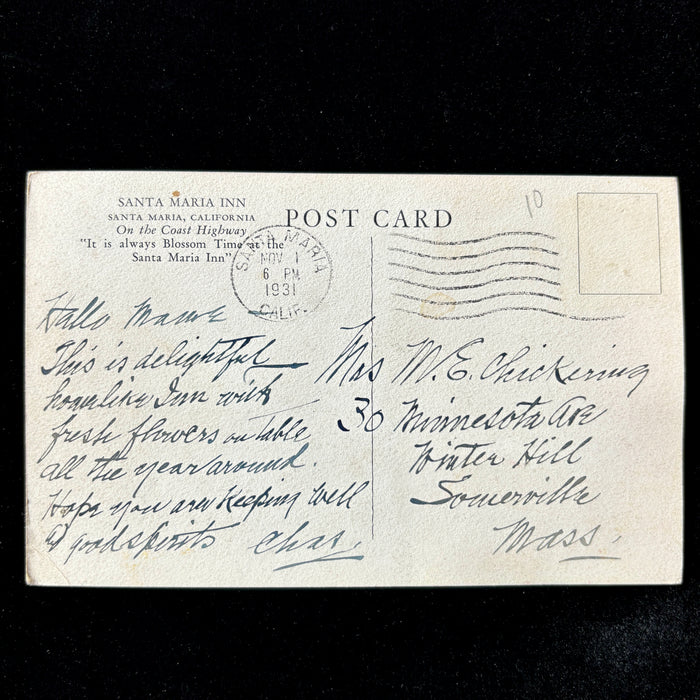 SANTA MARIA INN
SANTA MARIA, CALIFORNIA
On the Coast Highway
"It is always Blossom Time at the
Santa Maria Inn"
POST CARD
10
SANTA MARIA
NOV 1
6 PM
1931
CALIF.
Hallo Mame
This is delightful
homelike Inn with
fresh flowers on table
all the year around.
Hope you are keeping well
& good spirits Chas.
Mrs M. E. Chickering
30 Minnesota Ave
Winter Hill
Somerville
Mass.